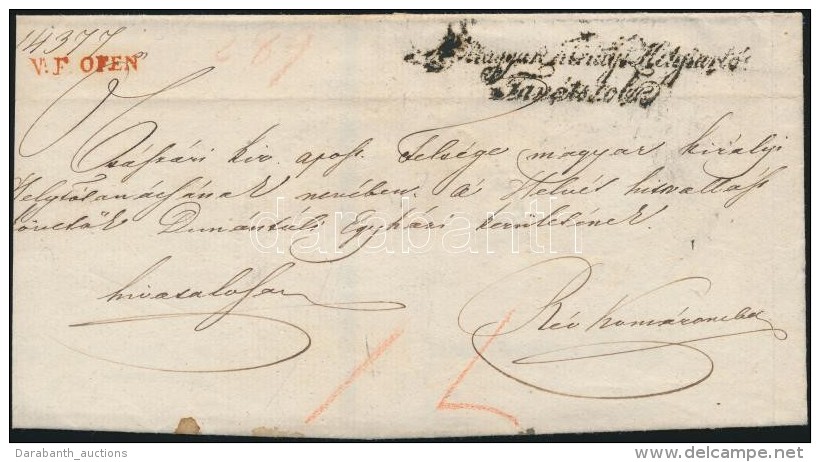 14377
V. F. OFEN
Magyar kiralyi Helytartó
Tanátstol
Császári kir. apost. Felsége magyar királyi
Helytótanácsának nevében. á Helvét hitvallást
követők Dunántuli Egyházi kerületének.
hivatalosan
Rév Komáromba
darabanth
Darabanth_auctions
www.delcampe.net